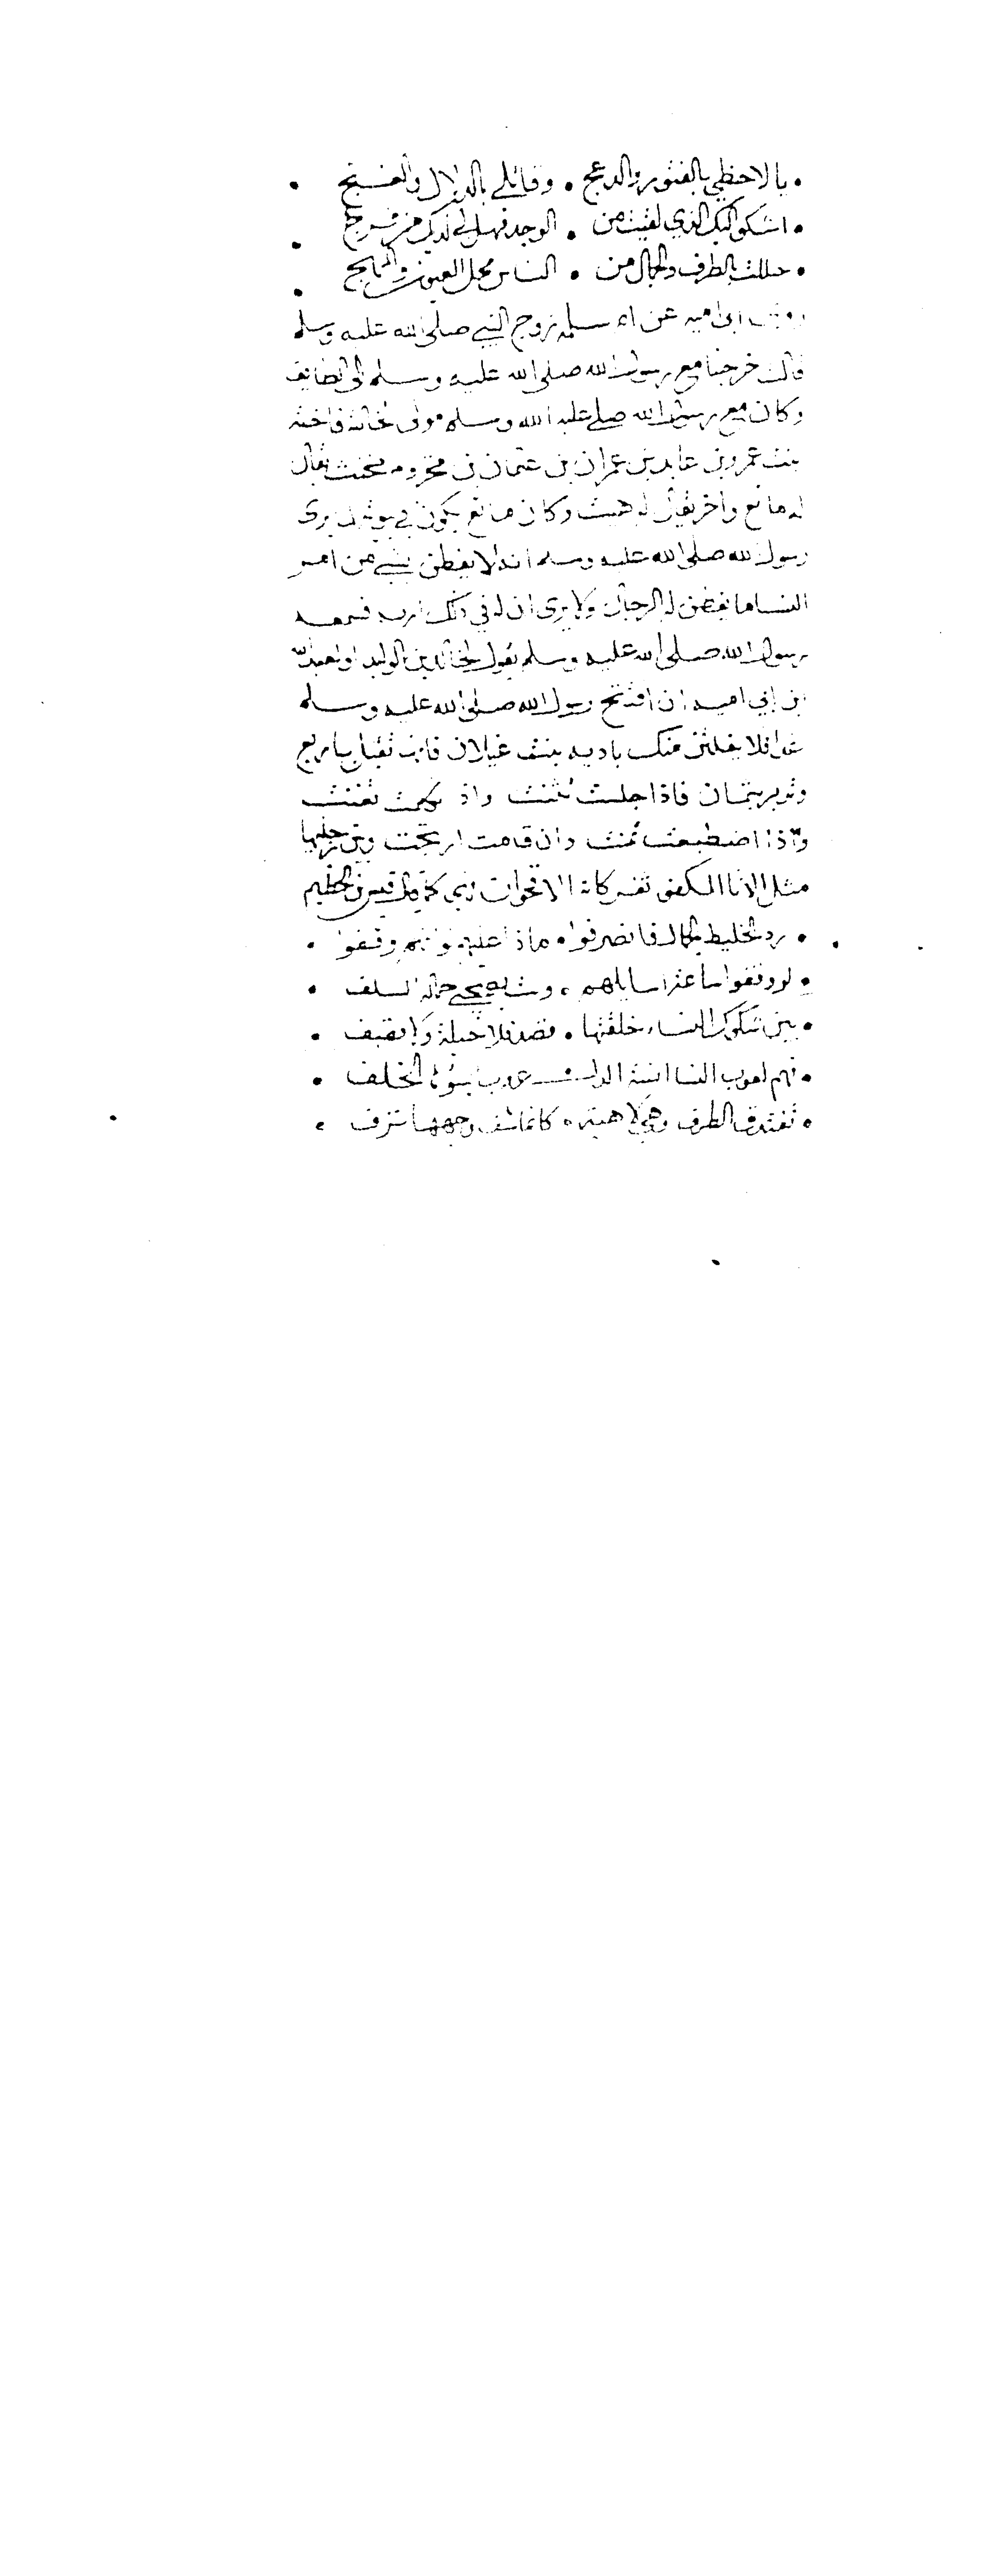 • يا لاحظي بالفتور والدعج • وقاتلي بالدلال والغنج •
• اشكو اليك الذي لقيت من • الوجد فهل لي لديك من فرج •
• حللت بالظرف والجمال من • الناس محل العيون والمهج •
ابى اميه عن ام سلمه زوج النبي صلى الله عليه وسلم
قالت خرجنا مع رسول الله صلى الله عليه وسلم الى الطايف
وكان مع رسول الله صلى عليه الله وسلم مولى لخالته فاخته
بنت عمرو بن عايد بن عمران بن عثمان بن مخزوم مخنث يقال
له ماتع واخر يقال له هيت وكان ماتع يكون في بيوته يرى
رسول الله صلى الله عليه وسلم انه لا يفطن بشي من امر
النسا ما يفطن له الرجال ولا يرى ان له في ذلك اربه فسمعه
رسول الله صلى الله عليه وسلم يقول لخالد بن الوليد او لعبد الله
ابن ابي اميه ان افتتح رسول الله صلى الله عليه وسلم
فلا يفلتن منك باديه بنت غيلان فانها تقبل باربع
وتدبر بثمان فاذا جلست تثنت واذا تكلمت تغنت
واذا اضطجعت تمنت وان قامت ارتجت وبين رجليها
مثل الانا المكفو ثغر كانه الاقحوان كما قال قيس بن الخطيم
• رد الخليط الجمال فانصرفوا • ماذا عليهم لو انهم وقفوا •
• لو وقفوا ساعة اسايلهم • جماله السلف •
• بين شكول النساء خلقتها • قصد فلا جبلة ولا قضف •
• فيهم لعوب النسا انسة الدل عروب يسوها الخلف •
• تغترق الطرف وهي لاهية • كانما شف وجهها نزف •